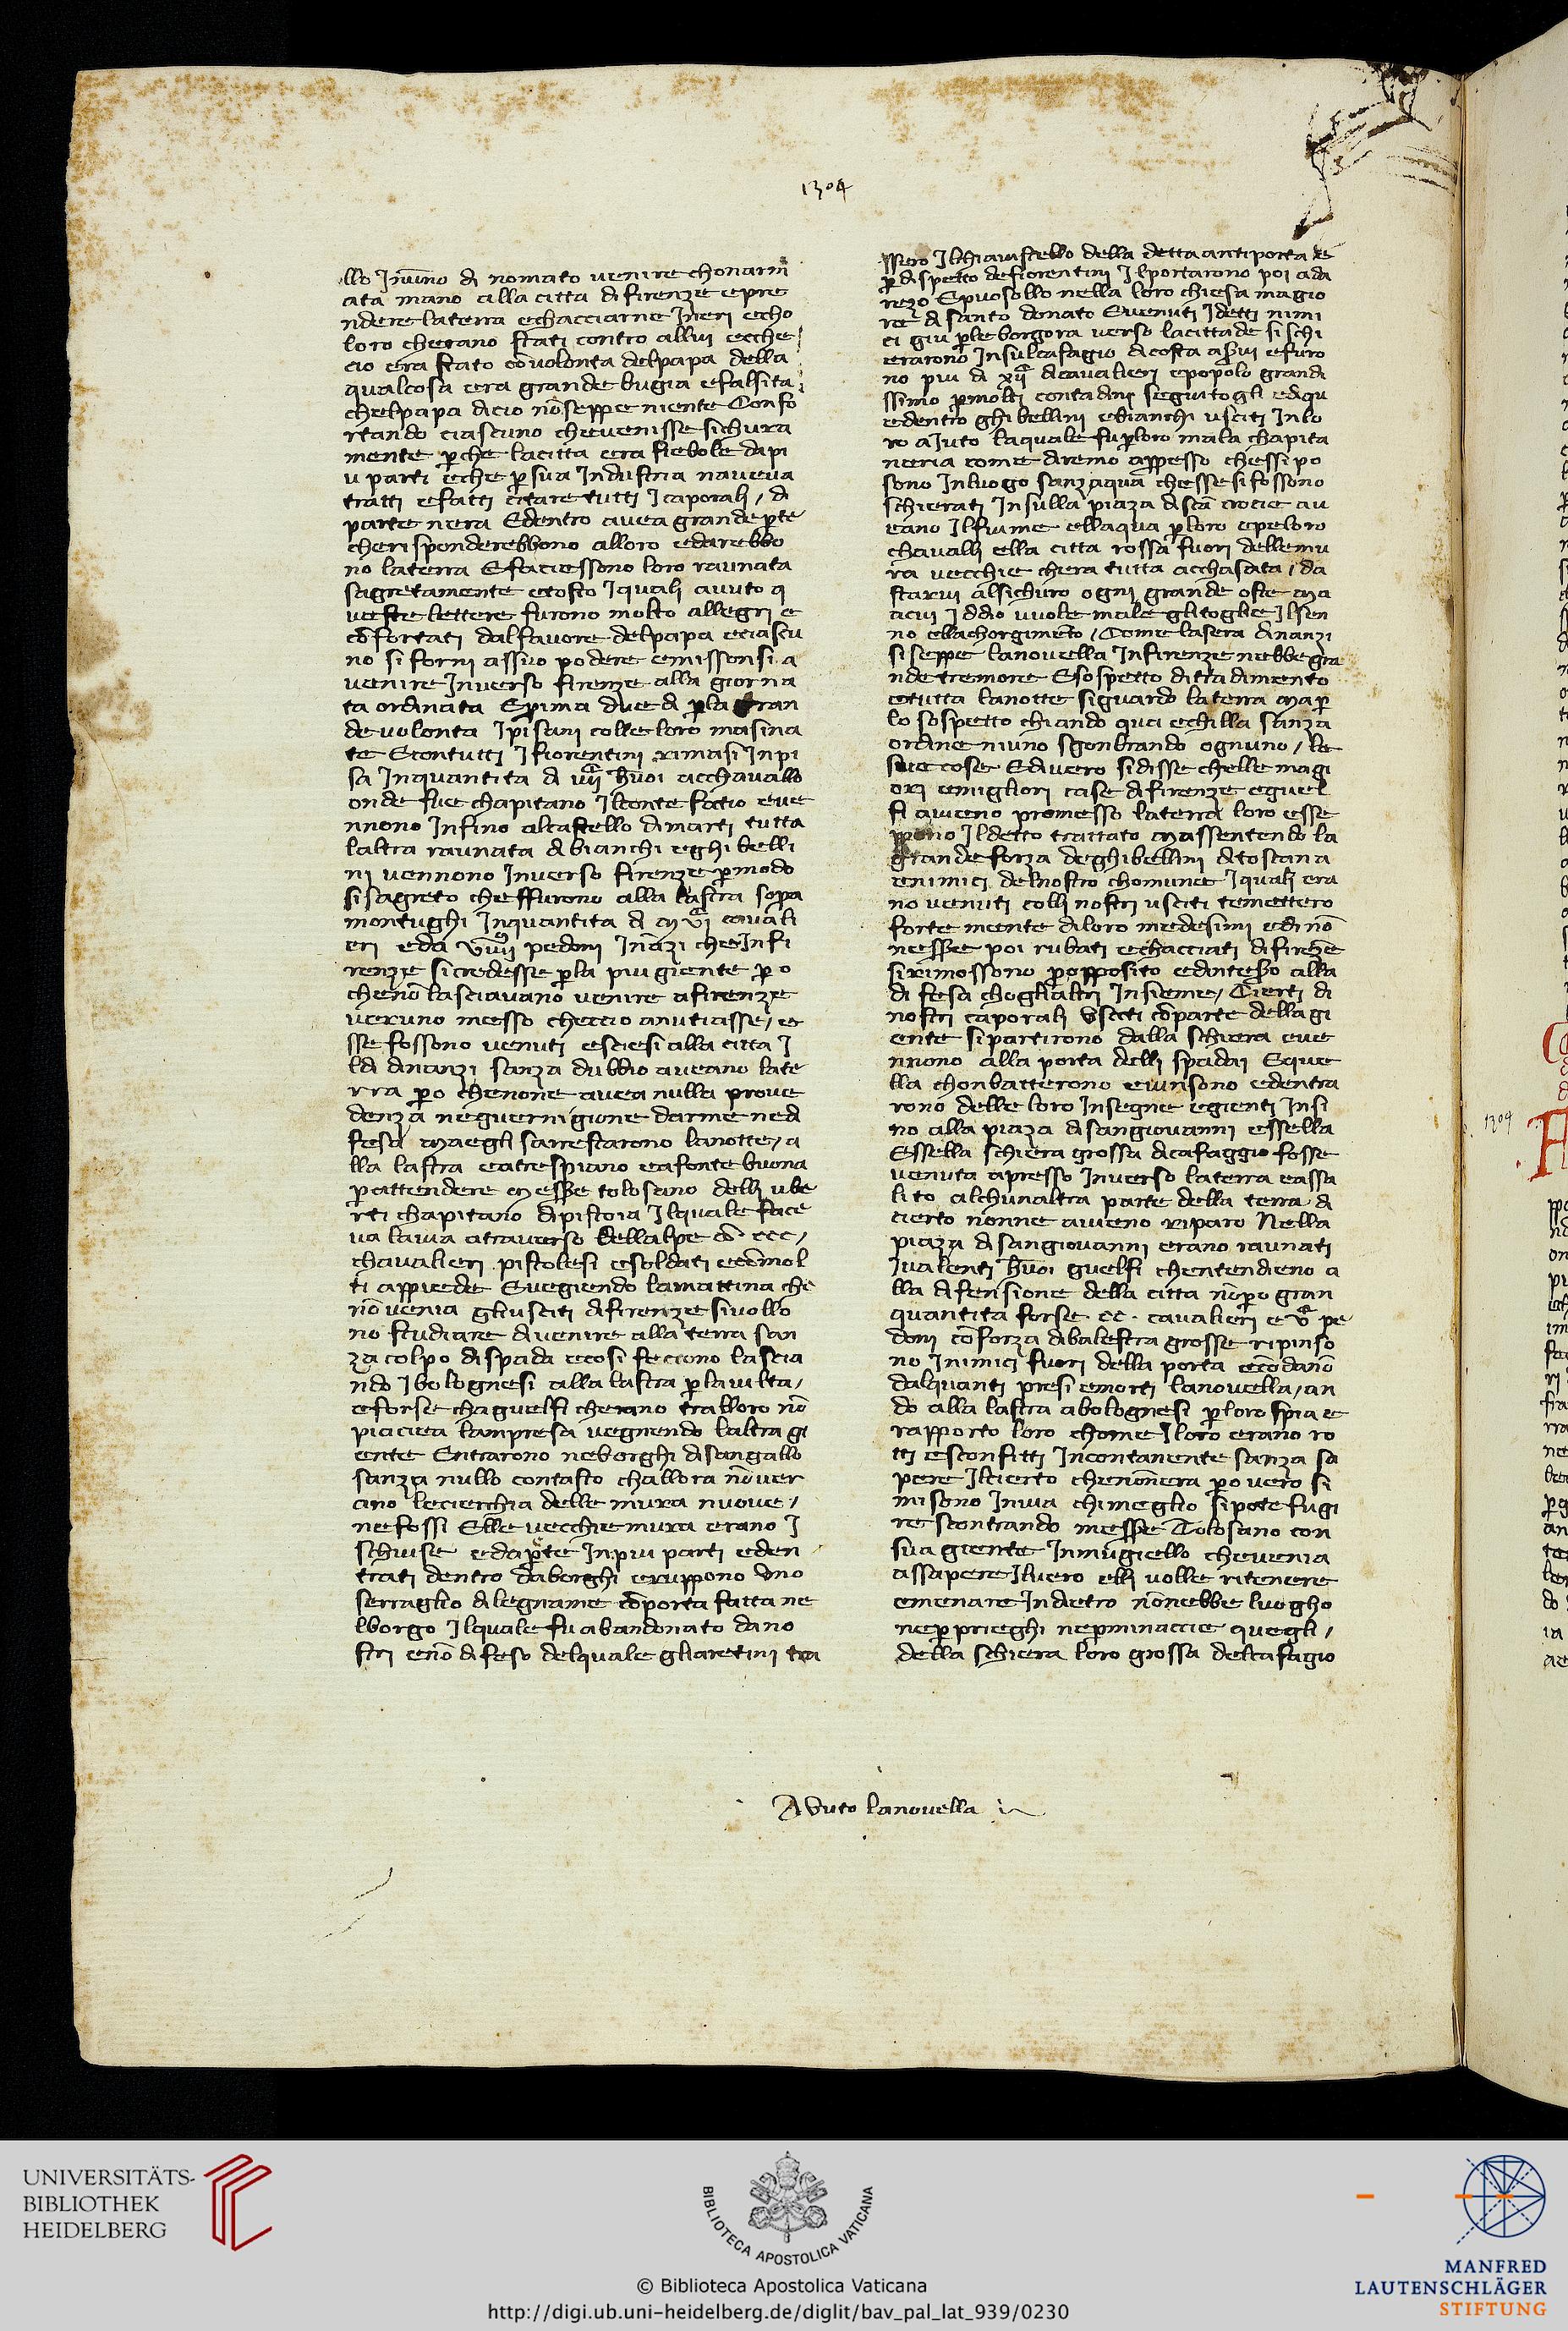 1304
llo Inuno di nomato uenire chonarm
ata mano alla citta di firenze epre
ndere laterra echacciarne Ineri echo
loro cherano stati contro allui ecche
cio era stato cōuolonta delpapa della
qualcosa era grande bugia efalsita
chelpapa dicio nōseppe niente Confo
rtando ciascuno cheuenisse sichura
mente ꝑche lacitta era fiebole dapi
u parti eche ꝑ sua Industria naueua
tratti efatti citare tutti Icaporali / di
parte nera Edentro auea grande ꝑte
cherisponderebbono alloro edarebbo
no laterra Efaciessono loro raunata
sagretamente etosto Iquali auuto q
ueste lettere furono molto allegri e
cōfortati dalfauore delpapa eciascu
no si forni assuo podere emissonsi a
uenire Inuerso firenze alla giorna
ta ordinata Eprima due di ꝑla gran
de uolonta Ipisani colle loro masina
te Econtutti Ifiorentini rimasi Inpi
sa Inquantita di
onde fue chapitano Ilconte fatio eue
nnono Infino alcastello dimarti tutta
laltra raunata dibianchi eghibelli
ni uennono Inuerso firenze ꝑmodo
sisagreto cheffurono alla lastra sopra
montughi Inquantita di caualli
eri eda pedoniInāzi cheInfi
renze sicredesse ꝑla piu giente ꝑ o
chenō lasciauano uenire afirenze
ueruno messo checcio anutiasse / e
sse fossono uenuti esciesi alla citta I
ldi dinanzi sanza dubbio aueano late
rra ꝑo chenone auea nulla proue
denza neguernigione darme nedi
fesa Maegli sarrestarono lanotte / a
lla lastra eatrespiano eafontebuona
ꝑattendere messe tolosano delli ube
rti chapitano dipistoia Ilquale face
ua lauia atrauerso dellalpe cō ccc /
chaualieri pistolesi esoldati ecōmol
ti appiede Euegiendo lamattina che
nō uenia gliusciti difirenze siuollo
no studiare diuenire alla terra san
za colpo dispada ecosi feciono lascia
ndo Ibolognesi alla lastra ꝑlauilta /
eforse chaguelfi cherano tralloro nō
piaciea lampresa uegnendo laltra gi
ente Entrarono neborghi disangallo
sanza nullo contasto challora nōuer
ano lecierchia delle mura nuoue /
nefossi Elle uecchie mura erano I
schiuse edaꝑte Inpiu parti eden
trati dentro daborghi eruppono uno
serraglio dilegname cōporta fatta ne
lborgo Ilquale fu abandonato dano
stri enō difeso delquale gliaretini tra
ssero Ilchiauistello della detta antiporta e
ꝑ dispetto defiorentini Ilportarono poi ada
rezo Epuosollo nella loro chiesa magio
re di santo donato Euenuti Idetti nimi
ci giu ꝑle borgora uerso lacittade si schi
erarono Insulcafagio dicosta aserui efuro
no piu di dicaualieri epopolo grandi
ssimo ꝑmolti contadini seguitogli ediqu
edentro ghibellini ebianchi usciti Inlo
ro aiuto laquale fu ꝑloro mala chapita
neria come diremo appresso chessi po
sono Inluogo sanzaqua chessesifossono
schierati Insulla piaza discā crocie au
eano Ilfiume ellaqua ꝑloro epeloro
chaualli ella citta rossa fuori dellemu
ra uecchie chera tutta acchasata / da
starui alsichuro ogni grande oste Ma
acui Iddio uuole male glitoglie Ilsen
no ellachorgimēto / Come lasera dinanzi
siseppe lanouella Infirenze nebbe gra
nde tremore Esospetto ditradimento
etutta lanotte siguardo laterra Maꝑ
lo sospetto chiando qua echilla sanza
ordine niuno sgonbrando ognuno / le
sue cose Ediuero sidisse chelle magi
ori emigliori case difirenze eguel
fi auieno promesso laterra loro esse
Ildetto trattato Massentendo la
grande forza deghibellini ditoscana
enimici delnostro chomune Iquali era
no uenuti colli nostri usciti temettero
forte mente diloro medesimi edi nō
nessere poi rubati echacciati difirenze
sirimossono ꝑopposito edintesero alla
difesa chogli altri Insieme / Cierti di
nostri caporali Usciti cōparte della gi
ente sipartirono dalla schiera eue
nnono alla porta delli spadai Eque
lla chonbatterono euinsono edentra
rono delle loro Insegne egienti Insi
no alla piaza disangiouanni essella
Essella schiera grossa dicafaggio fosse
uenuta apresso Inuerso laterra eassa
lito alchunaltra parte della terra di
cierto nonne auieno riparo Nella
piaza disangiouanni erano raunati
Iualenti huoī guelfi chentendieno a
lla difensione della citta nōꝑo gran
quantita forse cc. caualieri e pe
doni cōforza dibalestra grosse ripinso
no Inimici fuori della porta ecōdano
dalquanti presi emorti lanouella / an
do alla lastra abolognesi ꝑloro spia e
rapporto loro chome Iloro erano ro
tti esconfitti Incontanente sanza sa
pere Ilcierto chenōnera ꝑo uero si
misono Inuia chimeglio sipote fugi
re scontrando messe Tolosano con
sua giente Inmugiello cheuenia
assapere Iluero elli uolle ritenere
emenare Indietro nōnebbe luogho
neꝑ prieghi neꝑminaccie quegli /
della schiera loro grossa delcafagio
Auuto lanouella
1304
UNIVERSITÄTS-
BIBLIOTHEK
HEIDELBERG
BIBLIOTECA APOSTOLICA VATICANA
© Biblioteca Apostolica Vaticana
http://digi.ub.uni-heidelberg.de/diglit/bav_pal_lat_939/0230
MANFRED
LAUTENSCHLÄGER
STIFTUNG